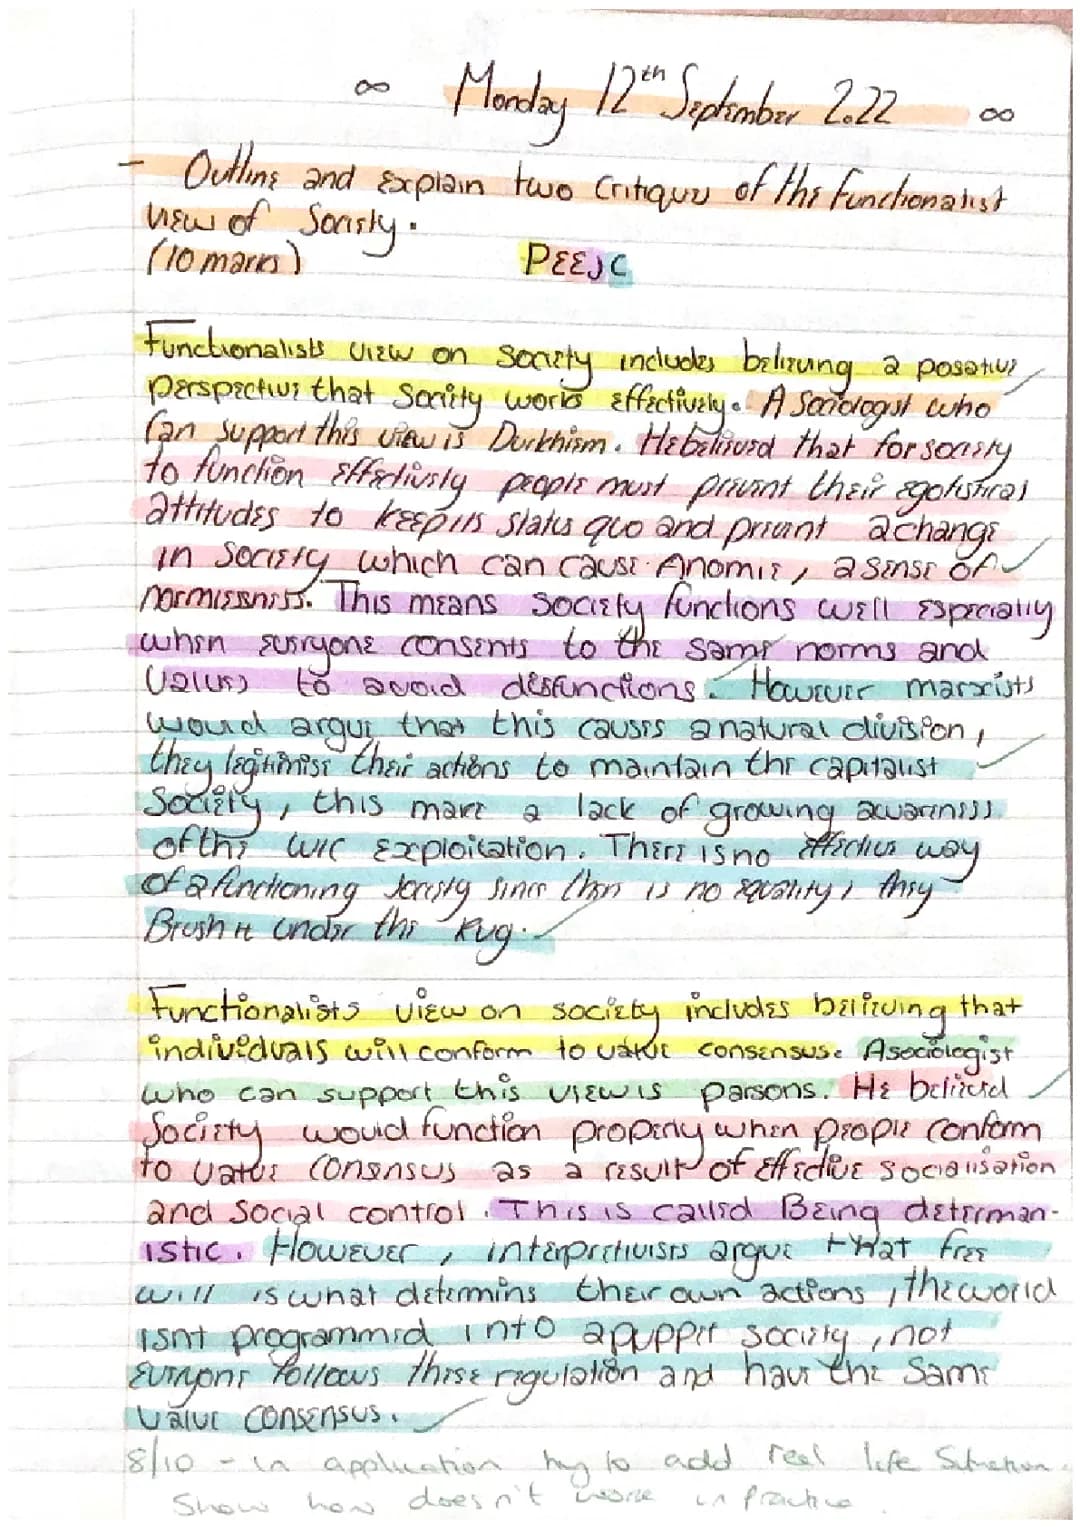 ∞ Monday 12th September 2022 ∞
- Outline and explain two Critiques of the Functionalist
view of Society.
(10 marks) PEEJC
Functionalists view on Society includes believing a posative
perspective that Society works effectively. A Sociologist who
can support this view is Durkhism. He believed that for society
to function effectively people must prevent their egotistical
attitudes to keep its status quo and prevent a change
in Society which can cause Anomie, a sense of
normlessness. This means Society functions well especially
when everyone consents to the same norms and
values to avoid disfunctions. However marxists
would argue that this causes a natural division,
they legitimise their actions to maintain the capitalist
Society, this make a lack of growing awareness
of the W/C exploitation. There is no effective way
of a functioning society since there is no equality, they
Brush it under the Rug.
Functionalists view on society includes believing that
individuals will conform to value consensus. A sociologist
who can support this view is parsons. He believed
Society would function properly when people conform
to value consensus as a result of effective socialisation
and social control. This is called Being determan-
istic. However, interpretivists argue that free
will is what determins their own actions, the world
isnt programmed into a puppet society, not
everyone follows these regulation and have the same
value consensus.
8/10 - in application try to add real life situation.
Show how doesn't work in practice.